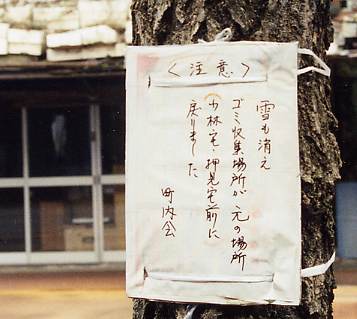 〈注意〉
雪も消え
ゴミ収集場所が元の場所
小林宅・押見宅前に
戻りました
町内会